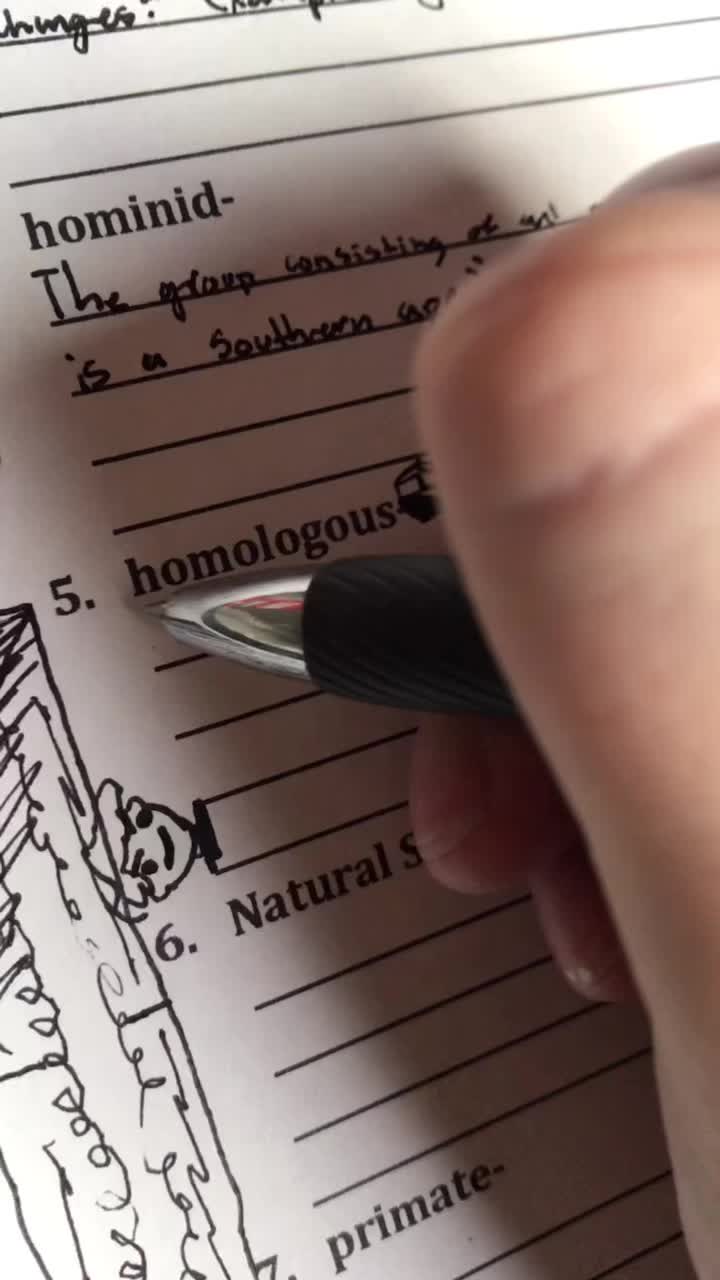 hominid-
The group consisting of
is a Southern
5. homologous
6. Natural
primate-